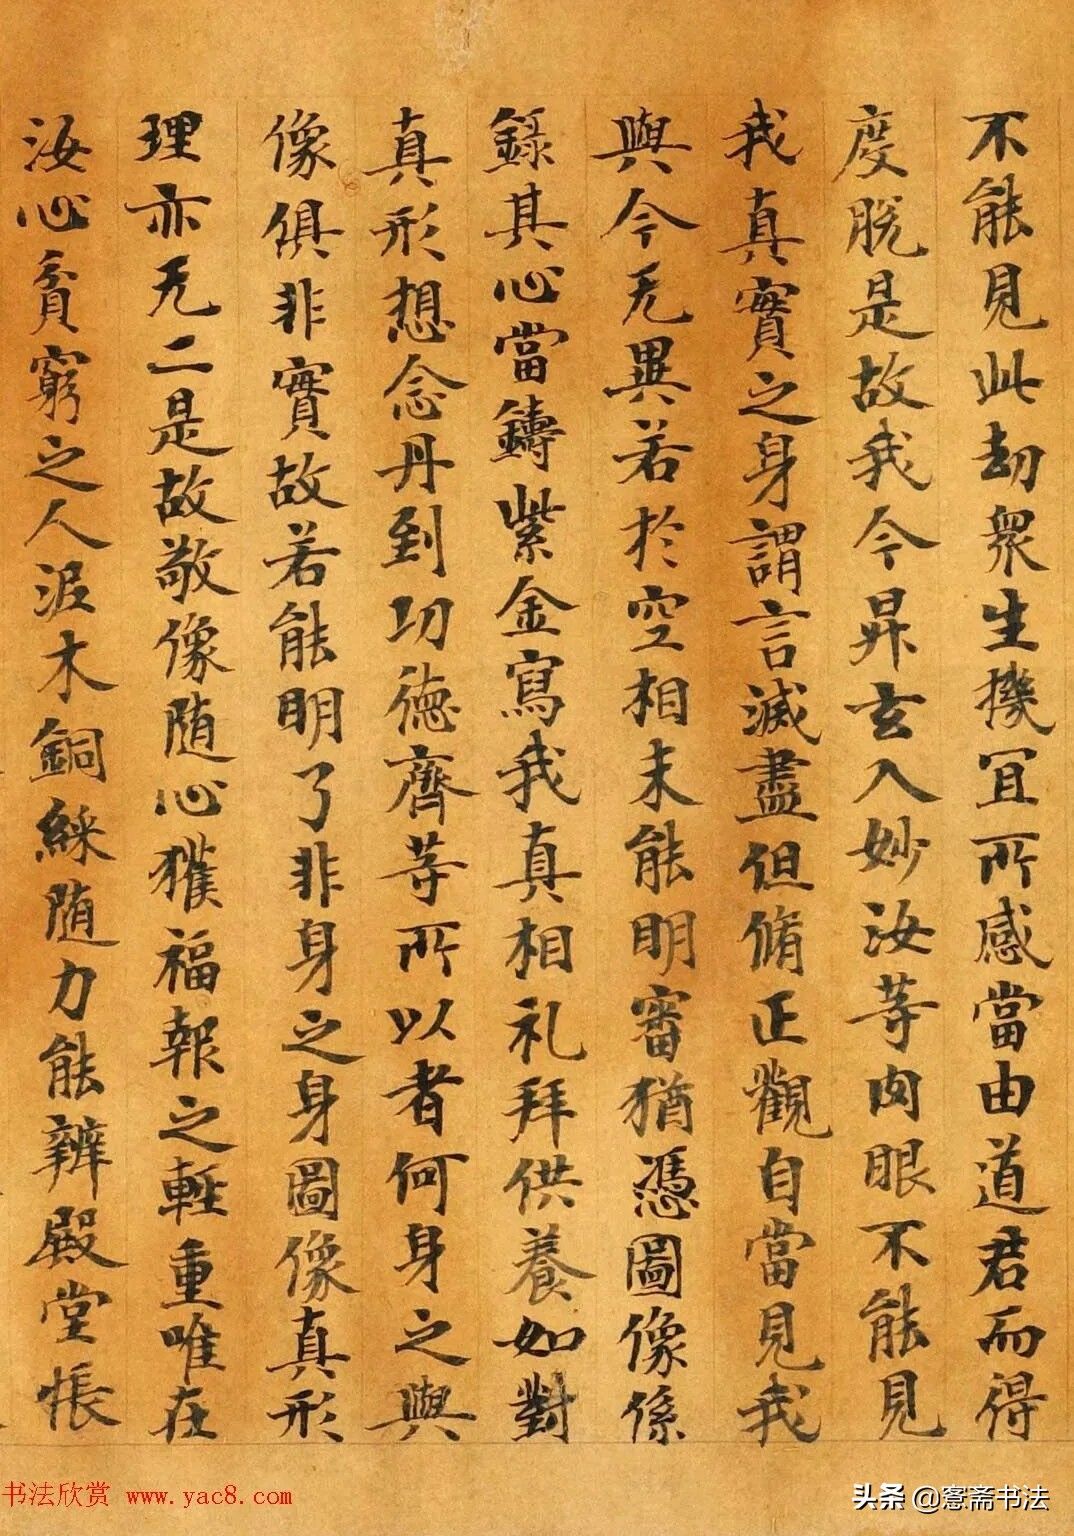 不能見此劫衆生機冝所感當由道君而得
度脫是故我今昇玄入妙汝等肉眼不能見
我真實之身謂言滅盡但脩正觀自當見我
與今无異若於空相未能明審猶憑圖像係
錄其心當鑄紫金寫我真相礼拜供養如對
真形想念丹到功德齊等所以者何身之與
像俱非實故若能明了非身之身圖像真形
理亦无二是故敬像随心獲福報之輕重唯在
汝心貧窮之人泥木銅綵随力能辨殿堂帳
书法欣赏 www.yac8.com
头条 @窓斋书法